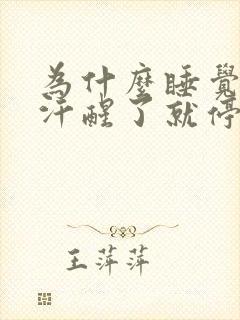 為什麼睡覺
汗醒了就停
王萍萍